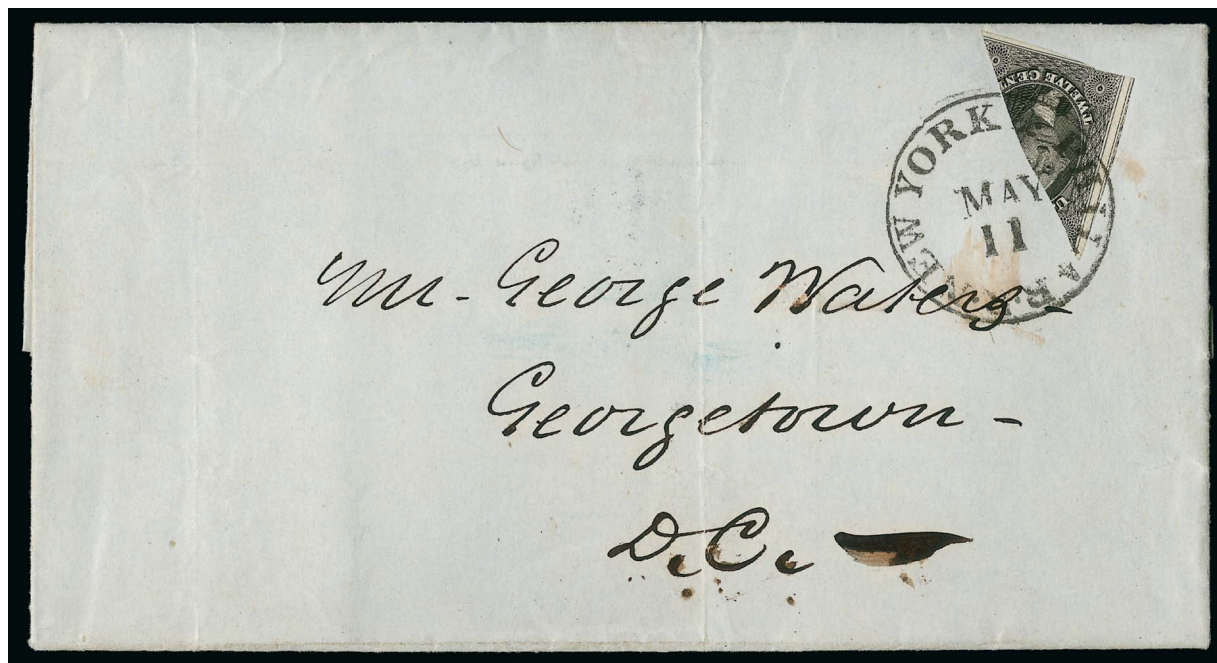 TWELVE CEN
NEW YORK
MAY
11
Mr - George Waters -
Georgetown -
D.C.